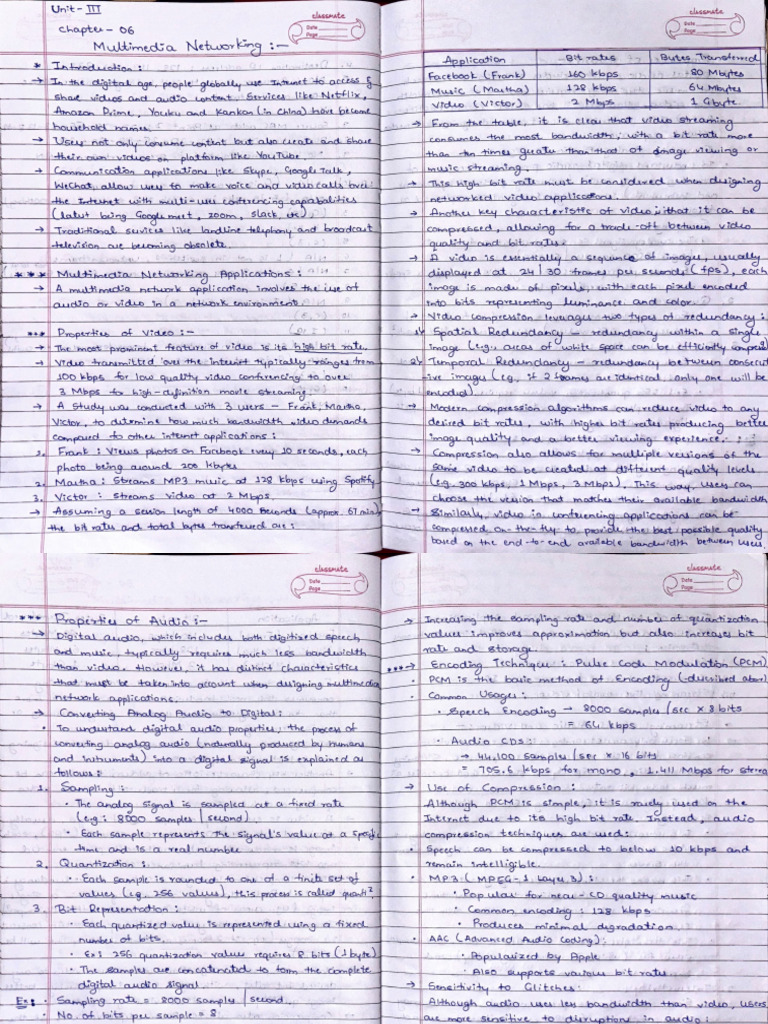 Unit - III
classmate
Date
Page
Chapter - 06
Multimedia Networking :-
* Introduction :
→ In the digital age, people globally use Internet to access &
share videos and audio content. Services like Netflix,
Amazon Prime, Youku and Kankan (in China) have become
household names.
→ Users not only consume content but also create and share
their own videos on platform like YouTube.
→ Communication applications like Skype, Google Talk,
WeChat, allow users to make voice and video calls over
the Internet with multi-user conferencing capabilities
(latest being Google meet, zoom, slack, etc)
→ Traditional services like landline telephony and broadcast
television are becoming obsolete.
*** Multimedia Networking Applications :
→ A multimedia network application involves the use of
audio or video in a network environment.
*** Properties of Video :-
→ The most prominent feature of video is its high bit rate.
→ Video transmitted over the Internet typically ranges from
100 kbps for low quality video conferencing to over
3 Mbps for high-definition movie streaming.
→ A study was conducted with 3 users - Frank, Martha,
Victor, to determine how much bandwidth video demands
compared to other internet applications :
1. Frank : Views photos on Facebook every 10 seconds, each
photo being around 200 kbytes
2. Martha : Streams MP3 music at 128 kbps using Spotify
3. Victor : streams video at 2 Mbps
→ Assuming a session length of 4000 seconds (approx. 67 min)
the bit rates and total bytes transferred are :
classmate
Date
Page
Application Bit rates Bytes Transferred
Facebook (Frank) 160 kbps 80 Mbytes
Music (Martha) 128 kbps 64 Mbytes
Video (Victor) 2 Mbps 1 Gbyte
→ From the table, it is clear that video streaming
consumes the most bandwidth, with a bit rate more
than ten times greater than that of image viewing or
music streaming.
→ This high bit rate must be considered when designing
networked video applications.
→ Another key characteristic of video is that it can be
compressed, allowing for a trade-off between video
quality and bit rates.
→ A video is essentially a sequence of images, usually
displayed at 24 | 30 frames per seconds (fps), each
image is made of pixels, with each pixel encoded
into bits representing luminance and color.
→ Video compression leverages two types of redundancy :
1. Spatial Redundancy - redundancy within a single
image (e.g., areas of white space can be efficiently compress
2. Temporal Redundancy - redundancy between consecut
-ive images (eg, if 2 frames are identical, only one will be
encoded)
→ Modern compression algorithms can reduce video to any
desired bit rates, with higher bit rates producing better
image quality and a better viewing experience.
→ Compression also allows for multiple versions of the
same video to be created at different quality levels
(e.g. 300 kbps, 1 Mbps, 3 Mbps), This way, users can
choose the version that matches their available bandwidth
→ Similarly, video in conferencing applications can be
compressed on-the-fly to provide the best possible quality
based on the end-to-end available bandwidth between users.
classmate
Date
Page
*** Properties of Audio :-
→ Digital audio, which includes both digitized speech
and music, typically requires much less bandwidth
than video. However, it has distinct characteristics
that must be taken into account when designing multimedia
network applications.
→ Converting Analog Audio to Digital :
• To understand digital audio properties, the process of
converting analog audio (naturally produced by humans
and instruments) into a digital signal is explained as
follows :
1. Sampling :
• The analog signal is sampled at a fixed rate
(e.g : 8000 samples | second).
• Each sample represents the signal's value at a specific
time and is a real number
2. Quantization :
• Each sample is rounded to one of a finite set of
values (eg. 256 values), this process is called quantiz
3. Bit Representation :
• Each quantized value is represented using a fixed
number of bits.
• Ex : 256 quantization values requires 8 bits (1 byte)
• The samples are concatenated to form the complete
digital audio signal
Ex : • Sampling rate = 8000 samples | second
• No. of bits per sample = 8
classmate
Date
Page
→ Increasing the sampling rate and number of quantization
values improves approximation but also increases bit
rate and storage.
*** → Encoding Technique : Pulse Code Modulation (PCM)
• PCM is the basic method of Encoding (described above)
• Common Usages :
• Speech Encoding → 8000 samples / sec × 8 bits
= 64 kbps
• Audio CDs :
→ 44,100 samples / sec × 16 bits
= 705.6 kbps for mono, 1.411 Mbps for stereo
→ Use of Compression :
Although PCM is simple, it is rarely used on the
Internet due to its high bit rate. Instead, audio
compression techniques are used :
• Speech can be compressed to below 10 kbps and
remain intelligible.
• MP3 (MPEG-1 Layer 3) :
• Popular for near-CD quality music
• Common encoding : 128 kbps
• Produces minimal degradation.
• AAC (Advanced Audio Coding) :
• Popularized by Apple
• Also supports various bit rates
→ Sensitivity to Glitches :
Although audio uses less bandwidth than video, users
are more sensitive to disruptions in audio :